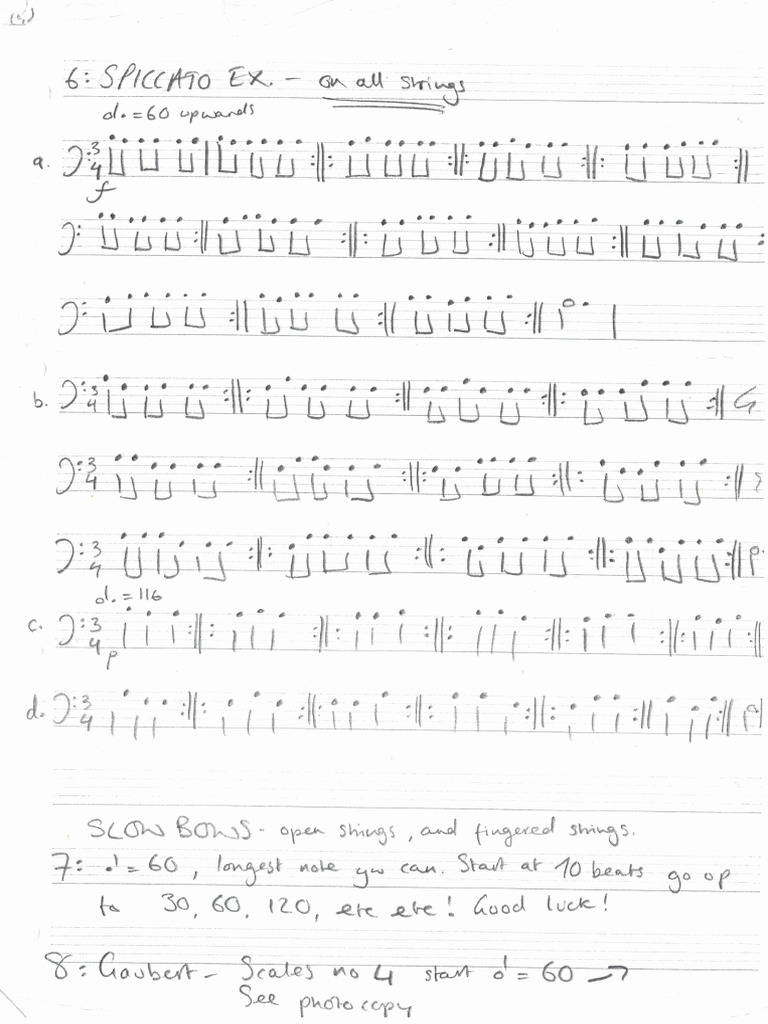 6: SPICCATO EX. - on all strings
d. = 60 upwards
a. 3/4
f
b. 3/4
3/4
3/4
d. = 116
c. 3/4
p
d. 3/4
SLOW BOWS - open strings, and fingered strings.
7: ♩ = 60, longest note you can. Start at 10 beats go up
to 30, 60, 120, etc etc! Good luck!
8: Gaubert - Scales no 4 start ♩ = 60 →
See photocopy